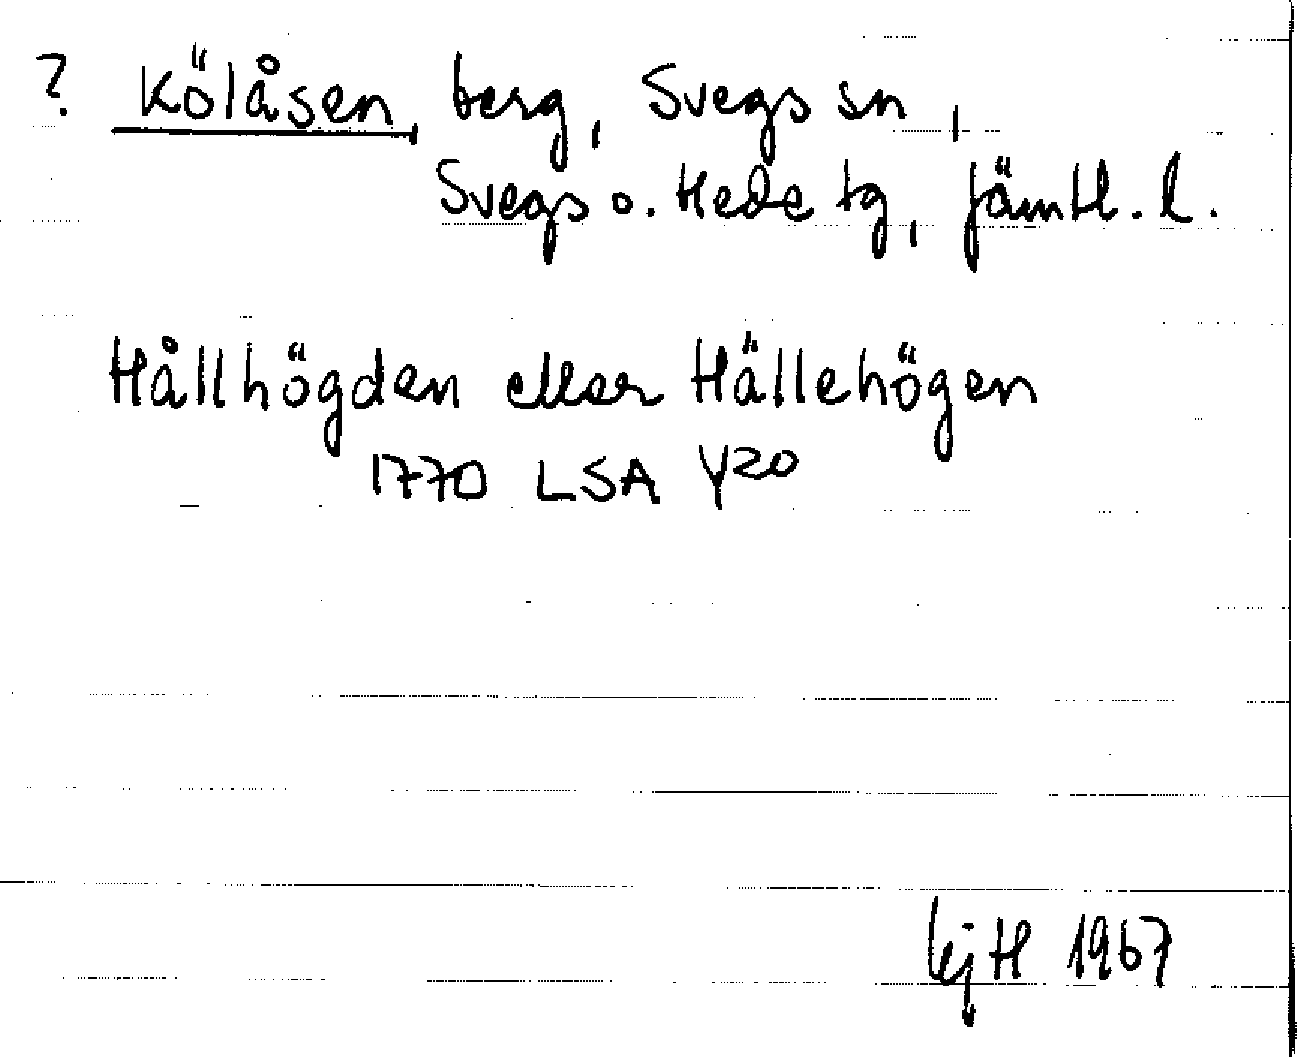 ? Kölåsen, berg, Svegs sn,
Svegs o. Hede tg, Jämtl. l.
Hållhögden eller Hällehögen
1770 LSA Y20
1967